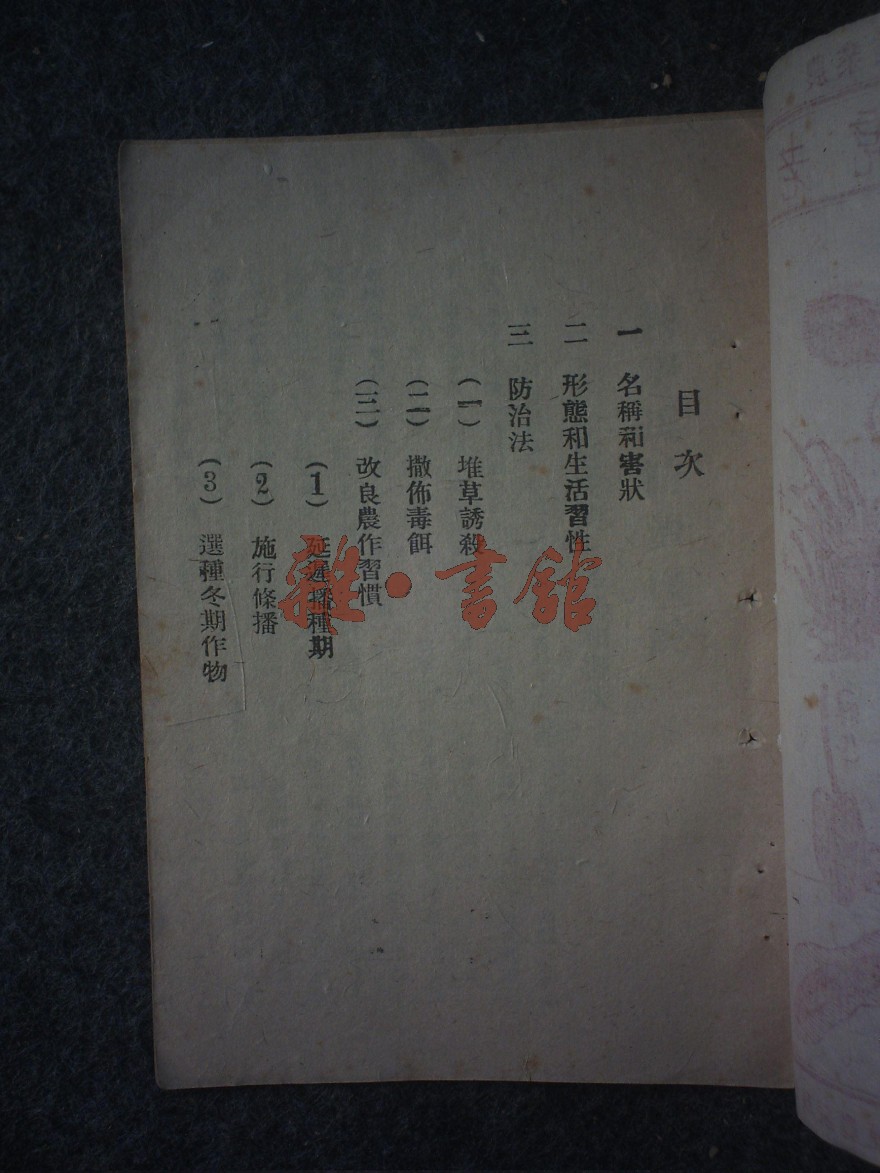 目次
一 名稱和害狀
二 形態和生活習性
三 防治法
(一) 堆草誘殺
(二) 撒佈毒餌
(三) 改良農作習慣
(1) 延遲播種期
(2) 施行條播
(3) 選種冬期作物
雜·書館